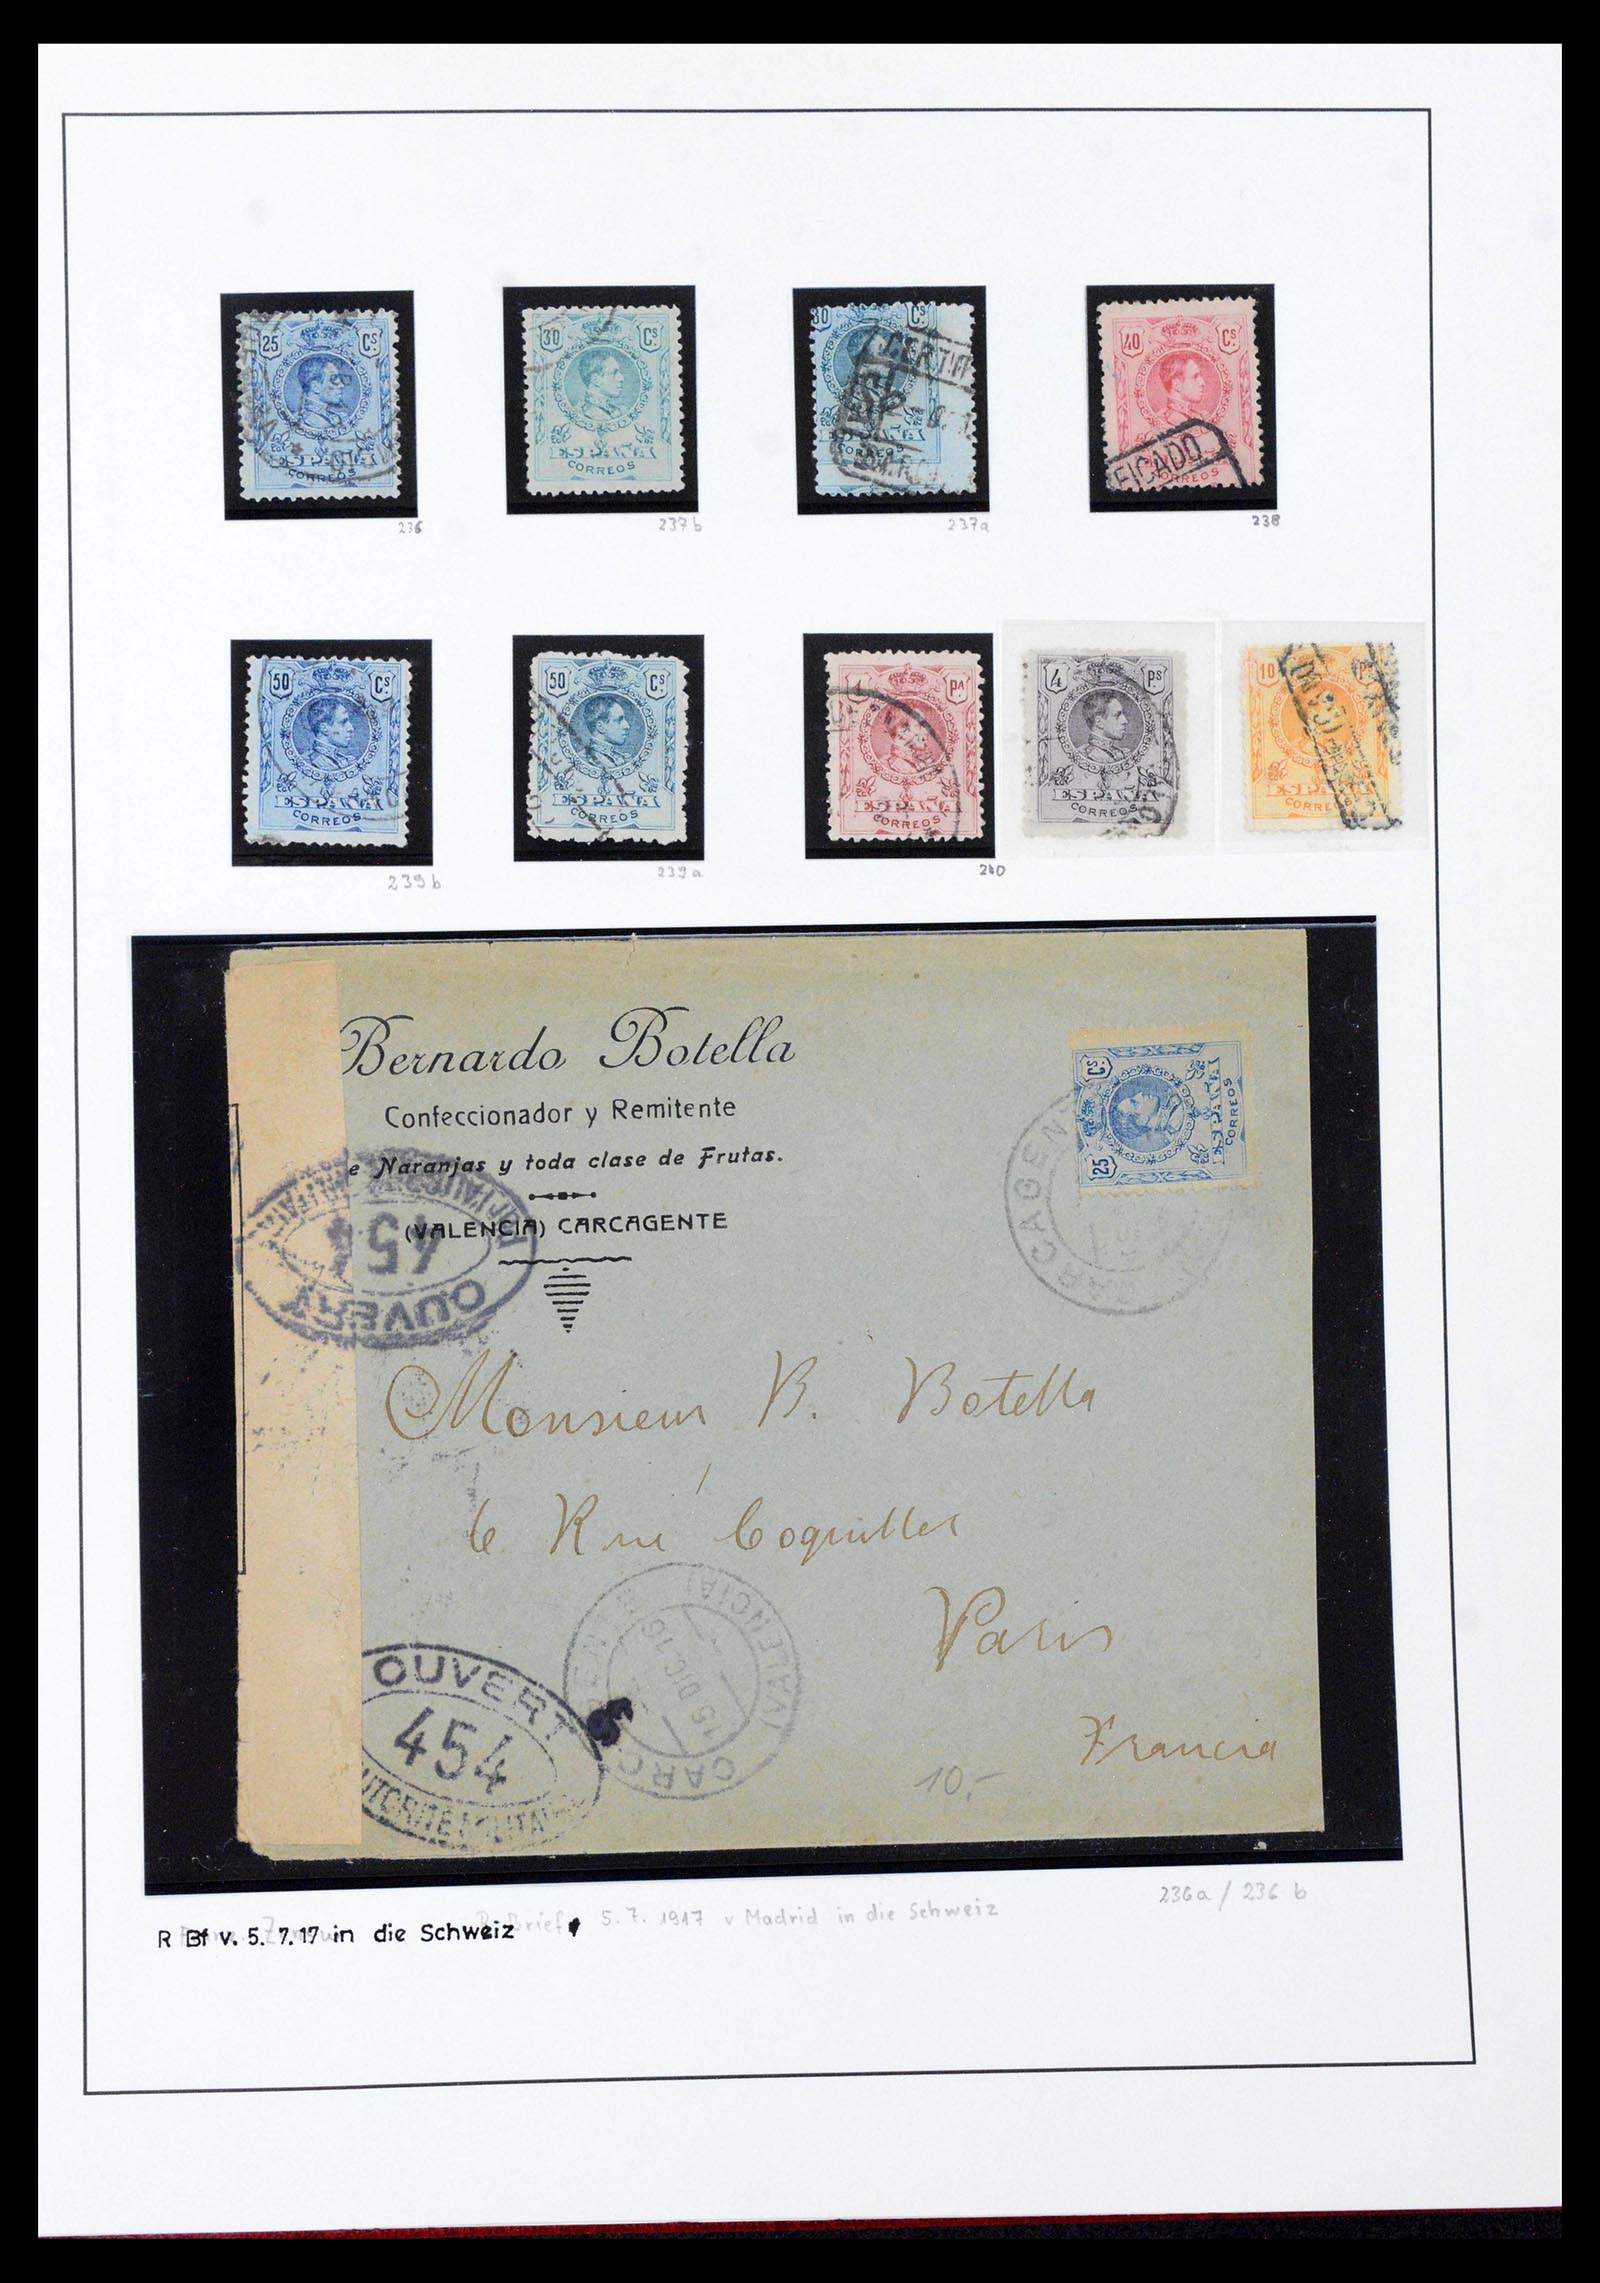 25 Cs
ESPAÑA
CORREOS
236
30 Cs
ESPAÑA
CORREOS
237b
30 Cs
ESPAÑA
237a
40 Cs
FICADO
CORREOS
238
50 Cs
ESPAÑA
CORREOS
239b
50 Cs
ESPAÑA
CORREOS
239a
1 PA
ESPAÑA
CORREOS
240
4 Ps
ESPAÑA
CORREOS
10 P
CORRE
Bernardo Botella
Confeccionador y Remitente
e Naranjas y toda clase de Frutas.
(VALENCIA) CARCAGENTE
25 Cs
ESPAÑA
CORREOS
CARCAGEN
OUVERT
454
Monsieur B. Botella
6 Rué Coquilles
Paris
Francia
CARC
(VALENCIA)
15 DIC. 16
OUVERT
454
AUTORITÉ MILITAI
10,-
236a / 236 b
R Brief 5. 7. 1917 v Madrid in die Schweiz
R Bf v. 5. 7. 17 in die Schweiz